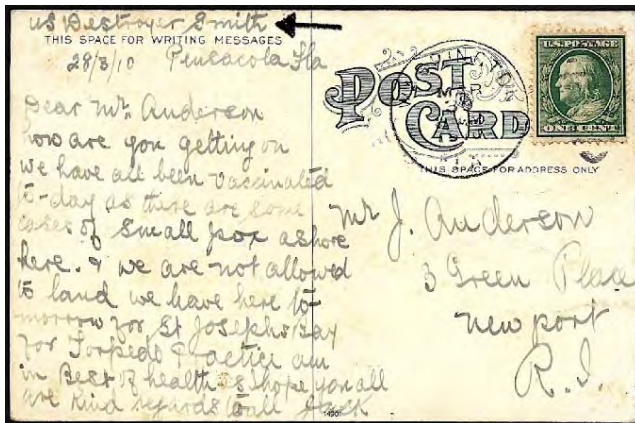 US Destroyer Smith
THIS SPACE FOR WRITING MESSAGES
28/3/10 Pensacola Fla
Dear Mr. Anderson
how are you getting on
we have all been vaccinated
to-day as there are some
cases of small pox ashore
here. & we are not allowed
to land we have here to-
morrow for St Josephs Bay
for Torpedo Practice am
in Best of health & hope you all
are Kind regards to all Jack
POST CARD
INGTON
MAR
U.S. POSTAGE
ONE CENT
THIS SPACE FOR ADDRESS ONLY
Mr J. Anderson
3 Green Place
Newport
R.I.